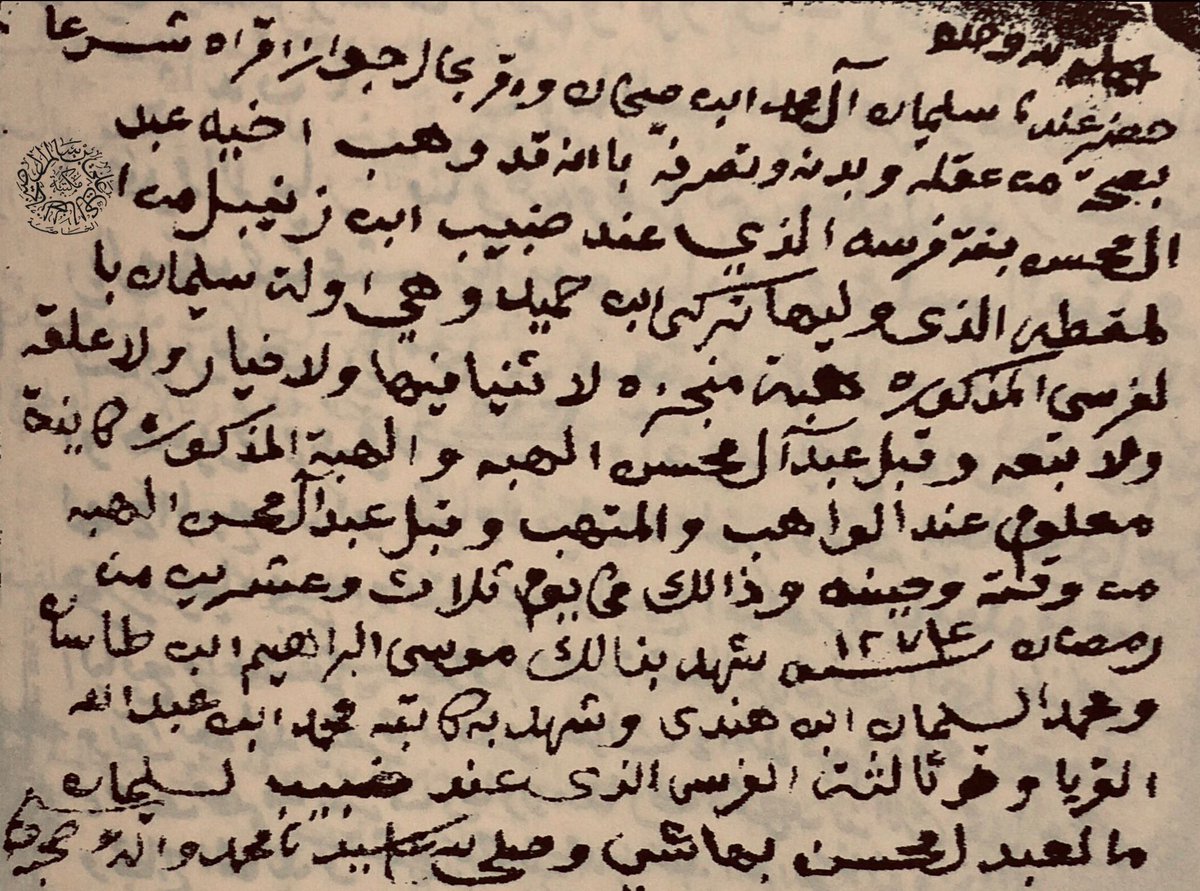 الحمد لله وحده
حضر عندي سليمان آل محمد ابن صيخان وقر بحال جواز اقراه شرعا
بصحة من عقله وبدنه وتصرفه باانه قد وهب اخيه عبد
ال محسن بنة فرسه الذي عند ضبيب ابن زنيبيل من ا
لمقطه الذي وليها تركي ابن حميد وهي اولة سليمان با
لفرسي المذكوره هبة منجزه لا ثنيا فيها ولا خيار ولا علقه
ولا بتعه وقبل عبدآل محسن الهبه والهبة المذكوره كاينة
معلوم عند الواهب والمتهب وقبل عبدآل محسن الهبه
من وقته وحينه وذالك في يوم ثلاث وعشرين من
رمضان سنه ١٢٧٤ شهد بذالك موسى البراهيم ابن طاسان
ومحمد السليمان ابن هندي وشهد به كاتبه محمد ابن عبدالله
القريا و ثالثة الفرسي الذي عند ضبيب لسليمان
ما لعبد ل محسن بها شي وصلى لله سيدنا محمد واله وصحبه